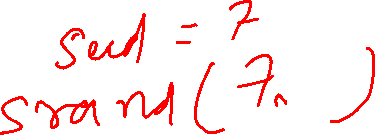 seed = 7
srand(7, )